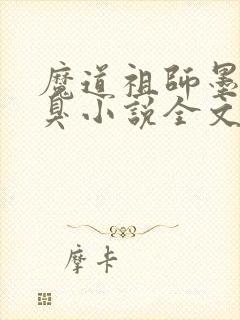 魔道祖師墨
臭小說全文
摩卡